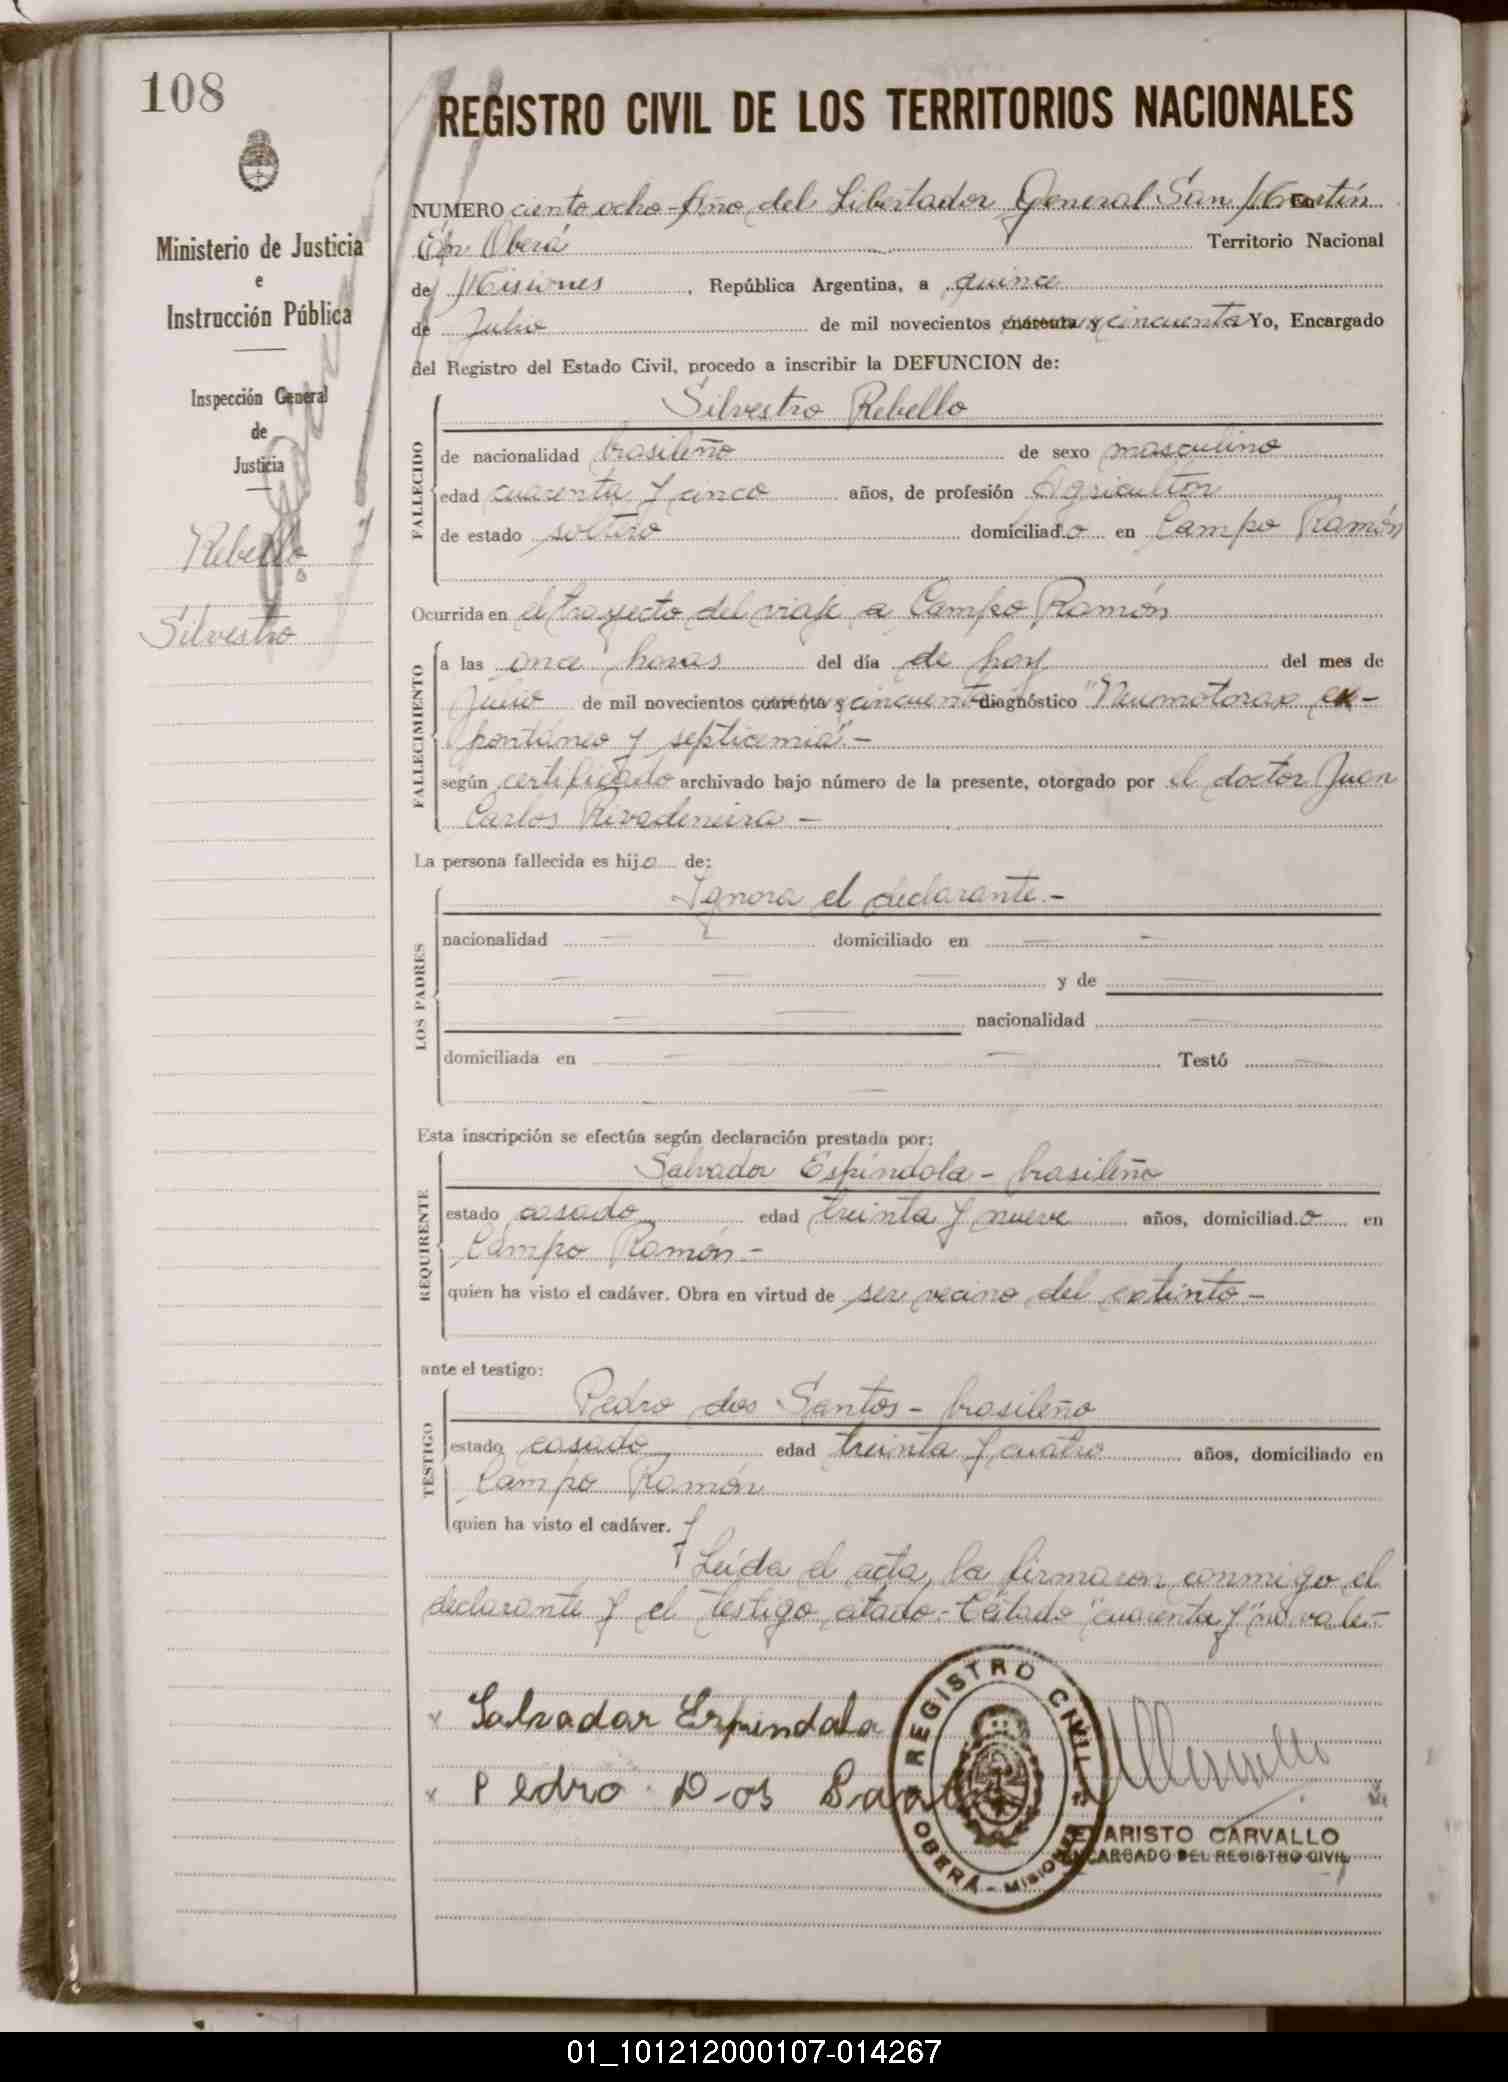 108
REGISTRO CIVIL DE LOS TERRITORIOS NACIONALES
Ministerio de Justicia
e
Instrucción Pública
Inspección General
de
Justicia
Rebello
Silvestro
NUMERO ciento ocho-Año del Libertador General San Martín
En Oberá Territorio Nacional
de Misiones, República Argentina, a quince
de Julio de mil novecientos cuarenta y cincuenta Yo, Encargado
del Registro del Estado Civil, procedo a inscribir la DEFUNCION de:
FALLECIDO
Silvestro Rebello
de nacionalidad brasileño de sexo masculino
edad cuarenta y cinco años, de profesión Agricultor
de estado soltero domiciliado en Campo Ramón
Ocurrida en el trayecto del viaje a Campo Ramón
FALLECIMIENTO
a las once horas del día de hoy del mes de
Julio de mil novecientos cuarenta y cincuenta diagnóstico "Neumotorax es-
pontáneo y septicemia".-
según certificado archivado bajo número de la presente, otorgado por el doctor Juan
Carlos Rivadeneira -
La persona fallecida es hijo de:
LOS PADRES
Ignora el declarante.-
nacionalidad — domiciliado en — —
— — — y de —
— — nacionalidad —
domiciliada en — — Testó —
Esta inscripción se efectúa según declaración prestada por:
REQUIRENTE
Salvador Espíndola - brasileño
estado casado edad treinta y nueve años, domiciliado en
Campo Ramón.-
quien ha visto el cadáver. Obra en virtud de ser vecino del extinto -
ante el testigo:
TESTIGO
Pedro dos Santos - brasileño
estado casado edad treinta y cuatro años, domiciliado en
Campo Ramón
quien ha visto el cadáver. y
Leída el acta, la firmaron conmigo el
declarante y el testigo citado.- Testado "cuarenta y" no vale.-
x Salvador Espindola
x Pedro Dos Sant
REGISTRO CIVIL
OBERÁ - MISIONES
EVARISTO CARVALLO
ENCARGADO DEL REGISTRO CIVIL
01_101212000107-014267